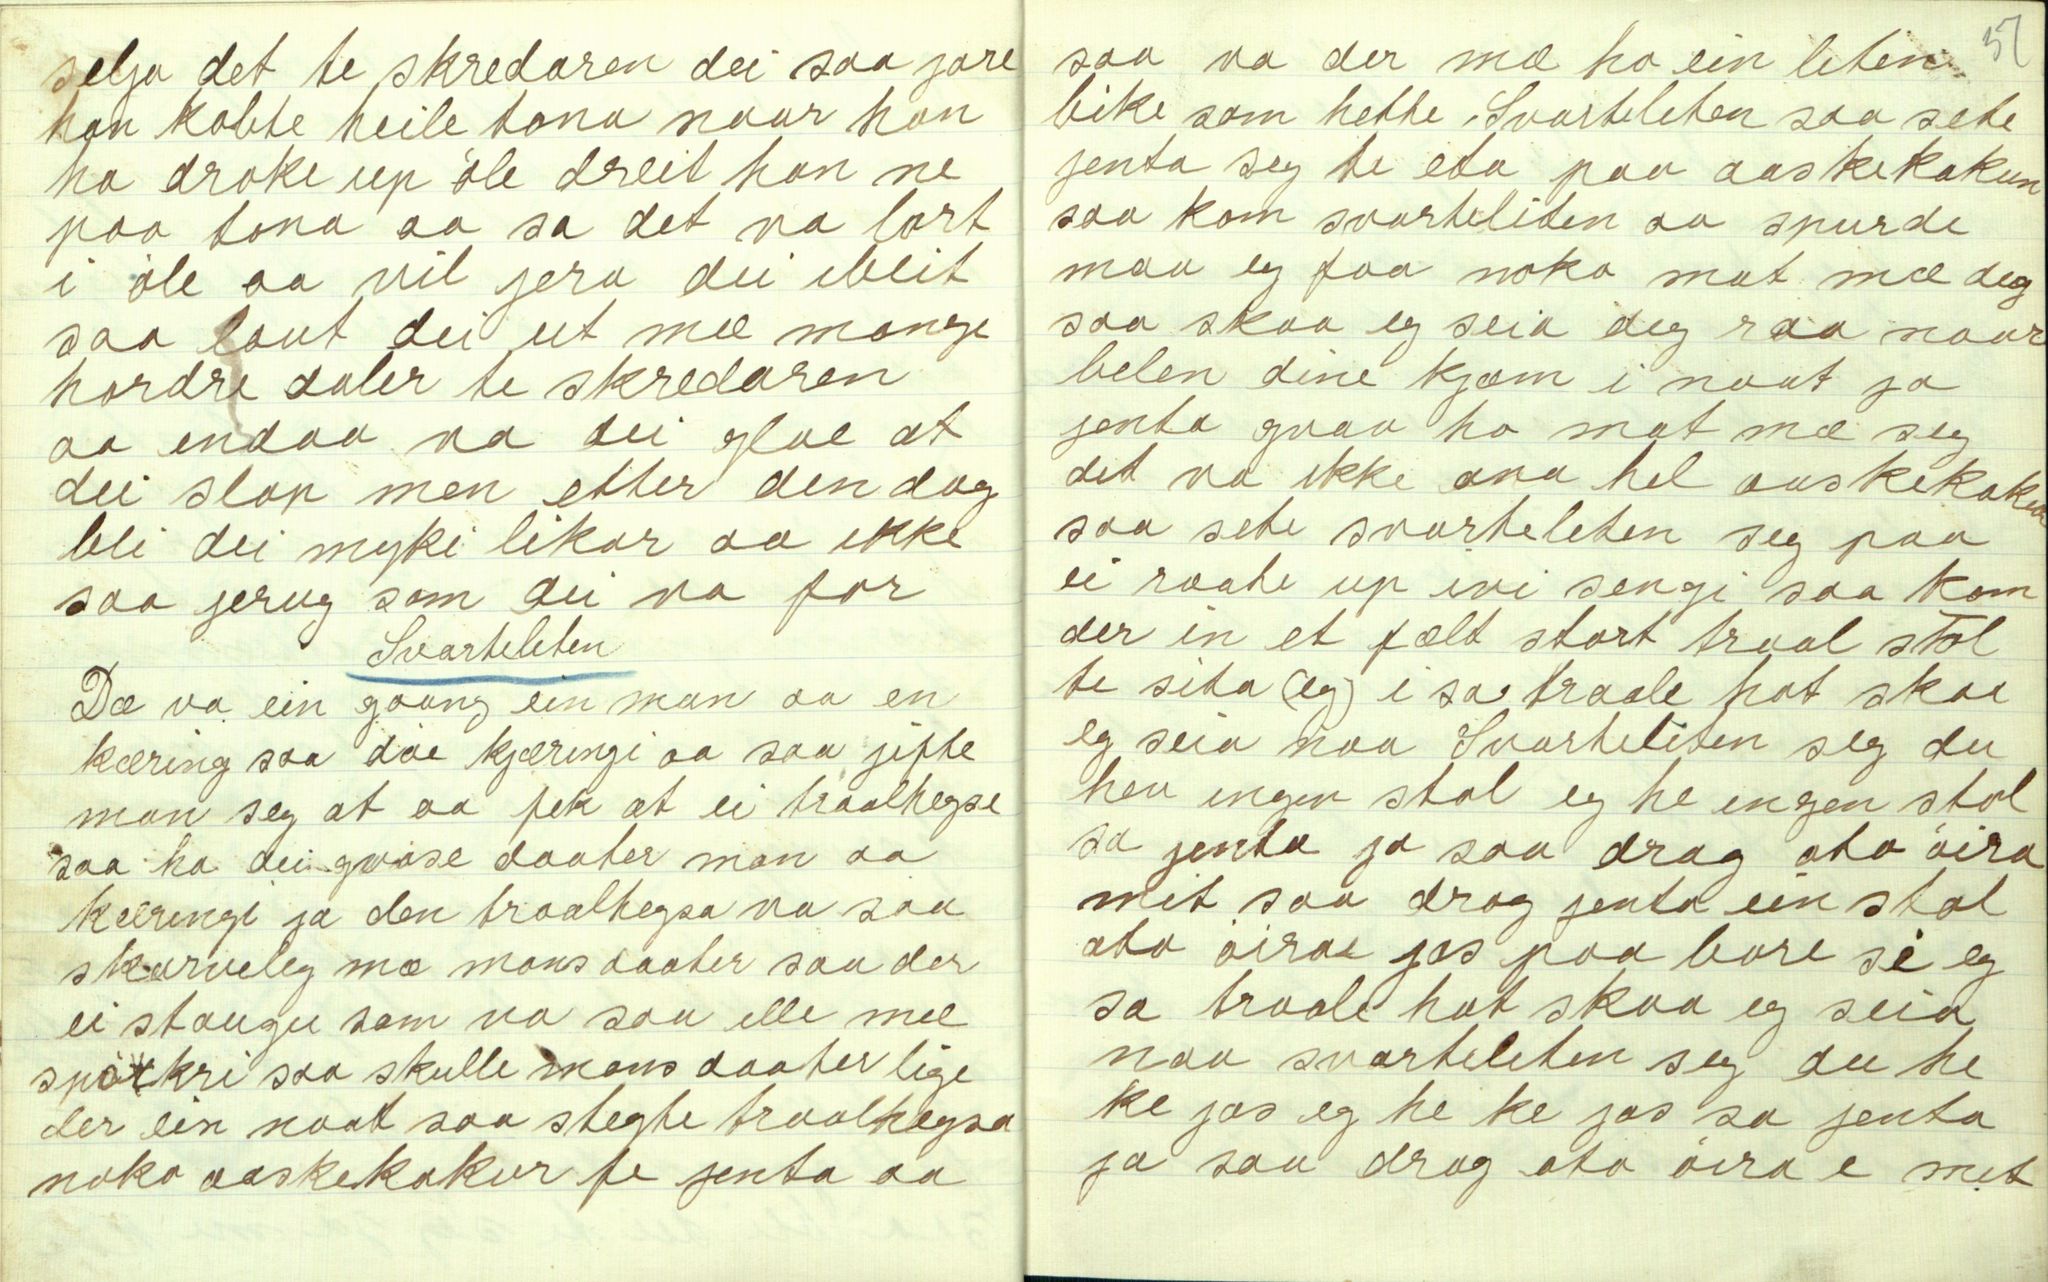 selja det te skredaren dei saa jore
han kobte heile tona naar han
ha droke up öle dreit han ne
paa tona aa sa det va lort
i öle aa vil jera dei ibeit
saa laut dei ut mæ mange
hordre daler te skredaren
aa endaa va dei glae at
dei slap men etter den dag
blei dei myki likar aa ikke
saa jerug som dei va for
Svarteleten
Dæ va ein gaang ein man aa en
kæring saa döe kjæringi aa saa jifte
man seg at aa fek at ei traalhegse
saa ha dei qvase daater man aa
kæringi ja den traalhegsa va saa
skarveleg mæ mans daater saa der
ei staugu som va saa ille mæ
spökri saa skulle mans daater lige
der ein naat saa stegte traalhegsa
noko aaskekakur te jenta aa
37
saa va der mæ ho ein leten
bike som hette Svarteleten saa sete
jenta seg te eta paa aaskekakun
saa kom svarteliten aa spurde
maa eg faa noko mat mæ deg
saa skaa eg seia deg raa naar
belen dine kjæm i naat ja
jenta gvaa ho mat mæ seg
det va ikke ana hel aaskekakur
saa sete svarteleten seg paa
ei raate up ivi sengi saa kom
der in et fælt stort traal stol
te sita (eg) i sa traale hot skaa
eg seia naa Svarteliten seg du
heu ingen stol eg he engen stol
sa jenta ja saa drag ota öira
mit saa drog jenta ein stol
ota öirae jos paa bore si eg
sa traale hot skaa eg seia
naa svarteleten seg du he
ke jos eg he ke jos sa jenta
ja saa drag ota öira e mit